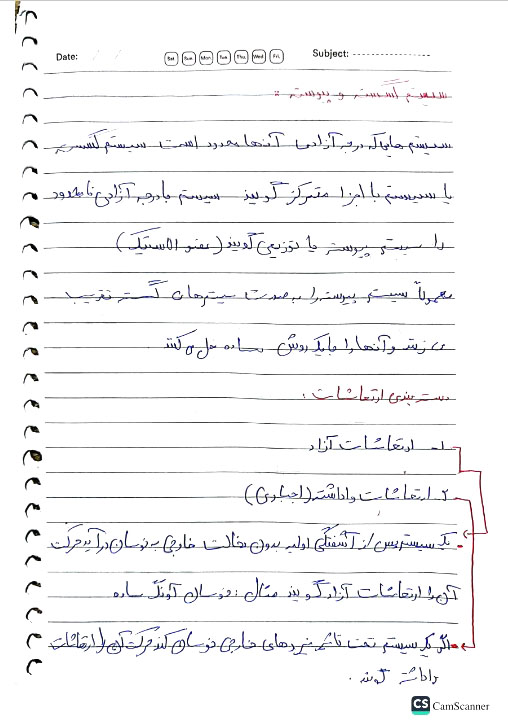 Date: / /
Sat. Sun. Mon. Tue. Thu. Wed. Fri.
Subject:
سیستم گسسته و پیوسته :
سیستم هایی که درجه آزادی آنها محدود است سیستم گسسته
یا سیستم با اجزا متمرکز گویند سیستم با درجه آزادی نامحدود
را سیستم پیوسته یا توزیعی گویند (عضو الاستیک)
معمولاً سیستم پیوسته را به صورت سیستم های گسسته تقریب
می زنند و آنها را با یک روش ساده حل می کنند
دسته بندی ارتعاشات :
۱- ارتعاشات آزاد
۲. ارتعاشات واداشته (اجباری)
یک سیستم پس از آشفتگی اولیه بدون دخالت خارجی به نوسان درآید حرکت
آن را ارتعاشات آزاد گویند مثال : نوسان آونگ ساده
اگر یک سیستم تحت تاثیر نیروهای خارجی نوسان کند حرکت آن را ارتعاشات
واداشته گویند .
CS CamScanner